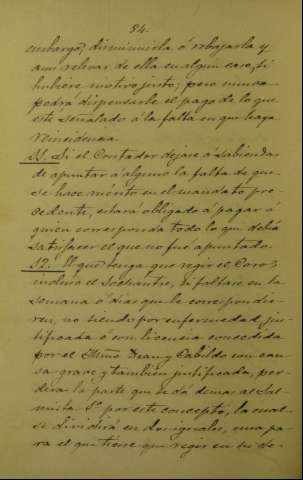 84.
embargo, disminuirla ó rebajarla y
aun relevar de ella en algun caso, si
hubiere motivo justo; pero nunca
podrá dispensarle el pago de lo que
esté señalado á la falta en que haya
reincidencia.
51. Si el Contador dejare á sabiendas
de apuntar á alguno la falta de que
se hace mérito en el mandato pre-
cedente, estará obligado á pagar á
quien corresponda todo lo que debá
satisfacer el que no fué apuntado.
52. El que tenga que regir el Coro,
incluso el Sochantre, si faltare en la
semana ó dias que le correspondie-
ren, no siendo por enfermedad jus-
tificada ó con licencia concedida
por el Iltmo Dean y Cabildo con cau-
sa grave y tambien justificada, per-
derá la parte que se dá demas al Sal-
mista 1º por este concepto, la cual
se dividirá en dos iguales, una pa-
ra el que tiene que regir en su de-